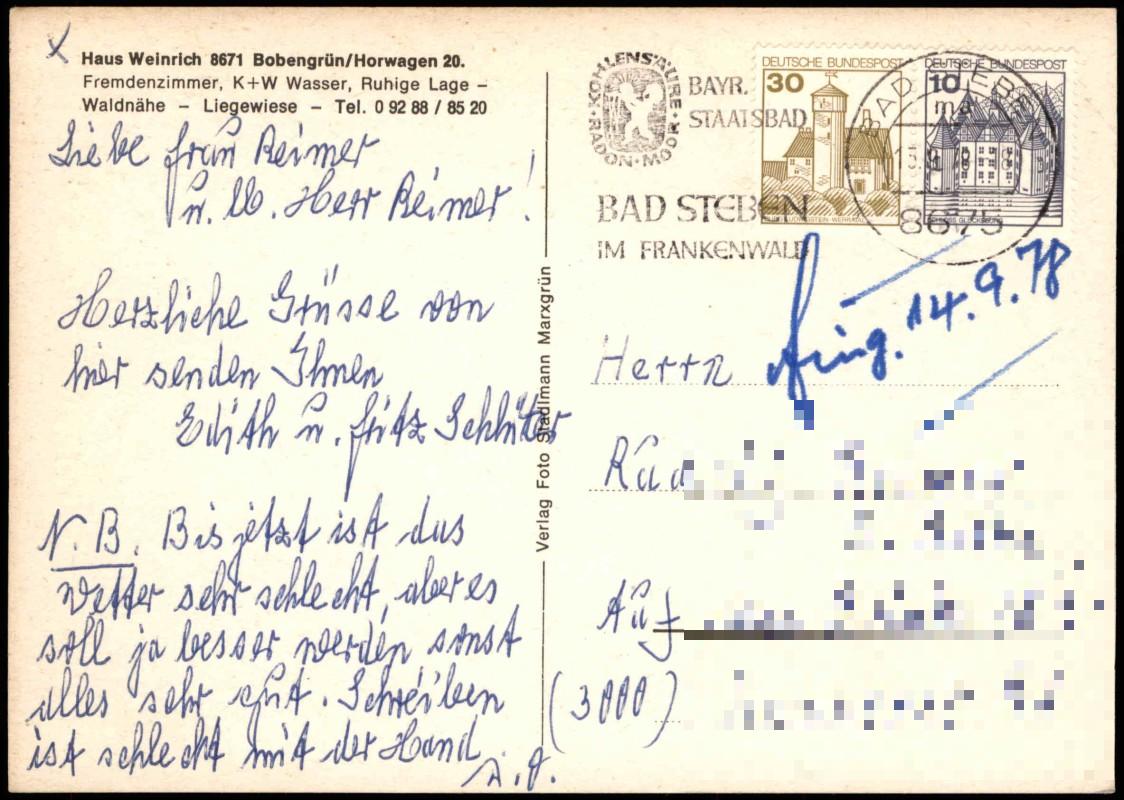 Haus Weinrich 8671 Bobengrün/Horwagen 20.
Fremdenzimmer, K+W Wasser, Ruhige Lage –
Waldnähe – Liegewiese – Tel. 0 92 88 / 85 20
Liebe Frau Reimer
u. lb. Herr Reimer!
Herzliche Grüsse von
hier senden Ihnen
Edith u. Fritz Schlüter
N.B. Bis jetzt ist das
Wetter sehr schlecht, aber es
soll ja besser werden sonst
alles sehr gut. Schreiben
ist schlecht mit der Hand
Verlag Foto Stadlmann Marxgrün
KOHLENSÄURE · MOOR · RADON ·
BAYR.
STAATSBAD
BAD STEBEN
IM FRANKENWALD
DEUTSCHE BUNDESPOST
30
DEUTSCHE BUNDESPOST
10
BAD STEBEN
8675
14.9.78
Herrn
(3000)